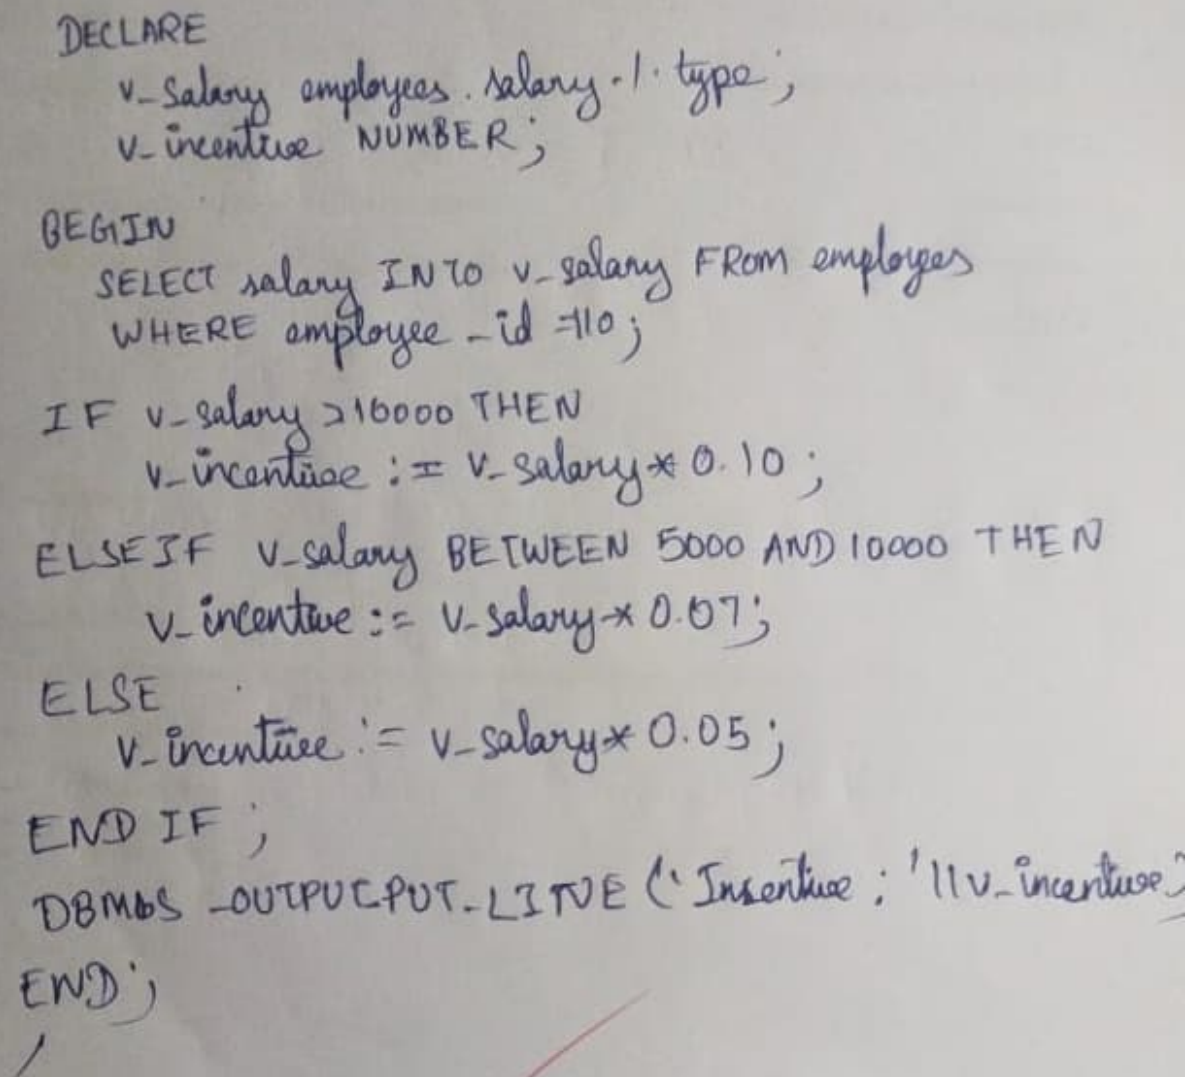 DECLARE
v_salary employees.salary.1.type;
v_incentive NUMBER;
BEGIN
SELECT salary INTO v_salary FROM employees
WHERE employee_id =110;
IF v_salary >10000 THEN
v_incentive := v_salary * 0.10;
ELSEIF v_salary BETWEEN 5000 AND 10000 THEN
v_incentive := v_salary * 0.07;
ELSE
v_incentive := v_salary * 0.05;
END IF;
DBMS_OUTPUT.PUT_LINE ('Insentive : '||v_incentive)
END;
/